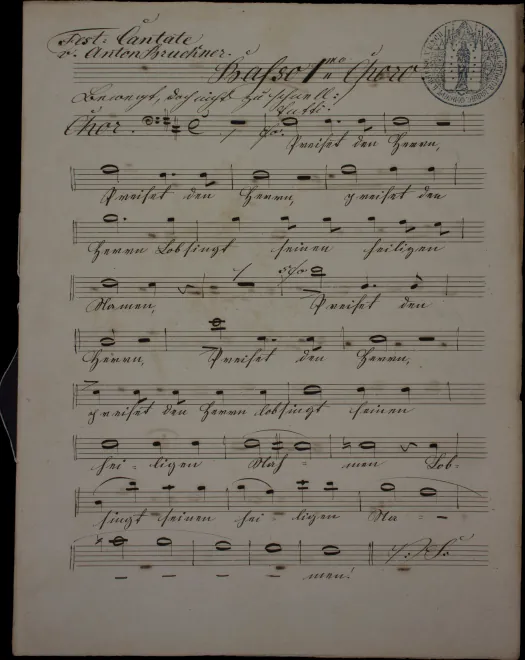 Fest-Cantate
v. Anton Bruckner.
Basso 1mo Choro
Bewegt, doch nicht zu schnell:
Tutti:
Chor.
Preiset den Herrn,
Preiset den Herrn, preiset den
Herrn Lobsingt seinen heiligen
Namen, Preiset den
Herrn, Preiset den Herrn,
preiset den Herrn lobsingt seinen
hei- ligen Nah- men Lob-
singt seinen hei- ligen Na- -
- - - - men!